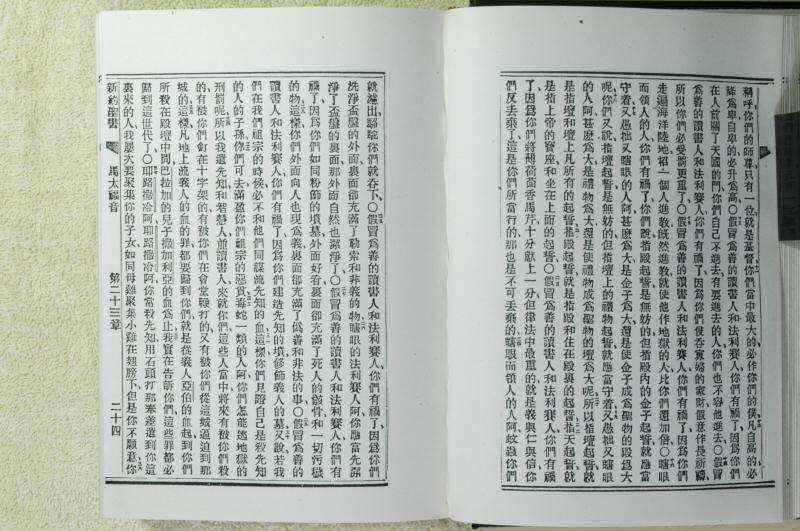 稱呼你們的師尊只有一位就是基督你們當中最大的必作你們的僕凡自高的必
降爲卑自卑的必升爲高〇假冒爲善的讀書人和法利賽人你們有禍了因爲你們
在人前關了天國的門你們自己不進去有要進去的人你們也不容他進去〇假冒
爲善的讀書人和法利賽人你們有禍了因爲你們侵吞寡婦的家財假意作長祈禱
所以你們必受罰更重了〇假冒爲善的讀書人和法利賽人你們有禍了因爲你們
走遍海洋陸地招一個人進教既然進教就使他作地獄的人比你們還加倍〇瞎眼
而領人的人你們有禍了你們說指殿起誓是無妨的但指殿內的金子起誓就應當
守着又愚拙又瞎眼的人阿甚麽爲大是金子爲大還是使金子成爲聖物的殿爲大
呢你們又說指壇起誓是無妨的但指壇上的禮物起誓就應當守着又愚拙又瞎眼
的人阿甚麽爲大是禮物爲大還是使禮物成爲聖物的壇爲大呢所以指壇起誓就
是指壇和壇上凡所有的起誓指殿起誓就是指殿和住在殿裏的起誓指天起誓就
是指上帝的寶座和坐在上面的起誓〇假冒爲善的讀書人和法利賽人你們有禍
了因爲你們將薄荷茴香馬芹十分獻上一分但律法中最重的就是義與仁與信你
們反丟棄了這是你們所當行的那也是不可丟棄的瞎眼而領人的人阿蚊蟲你們
就濾出駱駝你們就吞下〇假冒爲善的讀書人和法利賽人你們有禍了因爲你們
洗淨盃盤的外面裏面卻充滿了勒索和非義的物瞎眼的法利賽人阿你應當先洗
淨了盃盤的裏面那外面自然也潔淨了〇假冒爲善的讀書人和法利賽人你們有
禍了因爲你們如同粉飾的墳墓外面好看裏面卻充滿了死人的骸骨和一切汚穢
的物這樣你們外面向人也現爲義裏面卻充滿了僞善和非法的事〇假冒爲善的
讀書人和法利賽人你們有禍了因爲你們建造先知的墳修飾義人的墓又說若我
們在我們祖宗的時候必不和他們同謀流先知的血這樣你們見證自己是殺先知
的人的子孫你們可去滿盈你們祖宗的惡貫毒蛇一類的人阿你們怎能逃地獄的
刑罰呢所以我遣先知和智慧人並讀書人來就你們這些人當中將來有被你們殺
的有被你們釘在十字架的有被你們在會堂鞭打的又有被你們從這城逼迫到那
城的這樣凡地上流義人的血的罪都要歸到你們就是從義人亞伯的血起到你們
所殺在殿壇中間巴拉加的兒子撒加利亞的血爲止我實在告訴你們這些罪都必
歸到這世代了〇耶路撒冷阿耶路撒冷阿你常殺先知用石頭打那奉差遣到你這
裏來的人我屢次要聚集你的子女如同母雞聚集小雞在翅膀下但是你不願意你
新約聖書 馬太福音 第二十三章 二十四